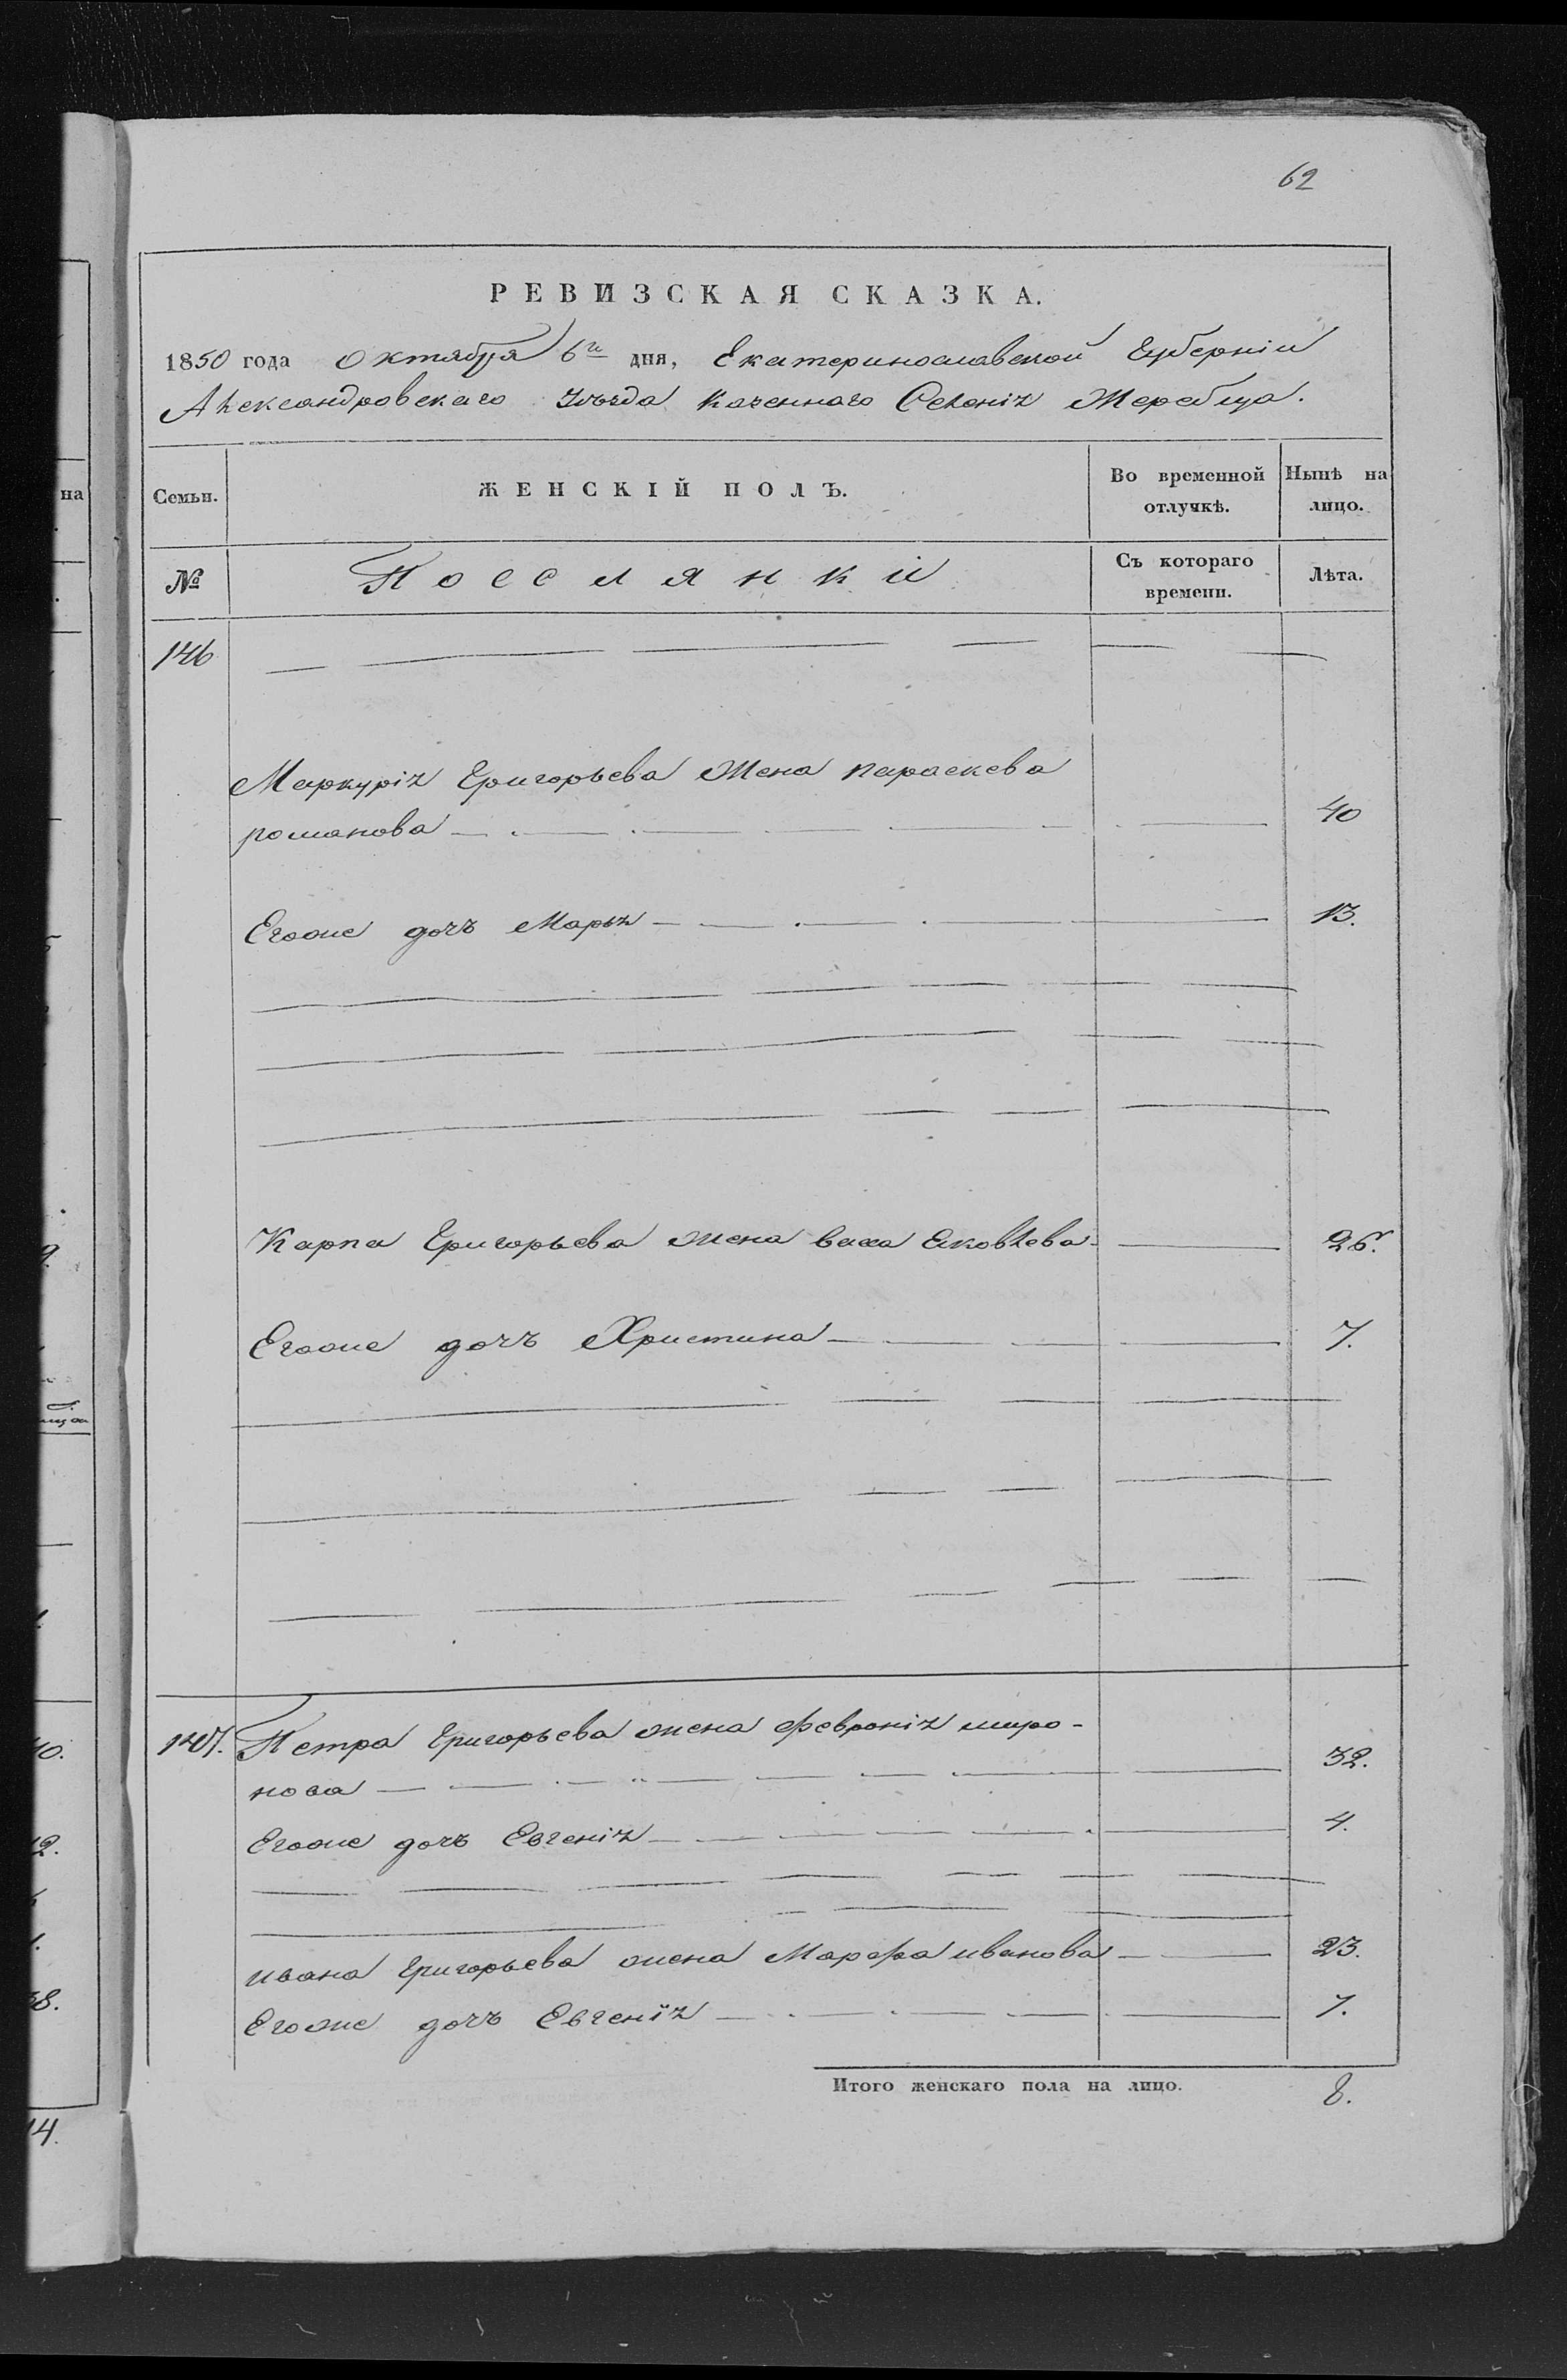 62
РЕВИЗСКАЯ СКАЗКА.
1850 года Октября 6го дня, Екатеринославской Губерніи
Александровскаго Уѣзда Казеннаго Селенія Жеребца.
Семьи.
ЖЕНСКІЙ ПОЛЪ.
Во временной отлучкѣ.
Нынѣ на лицо.
№
Поселянки
Съ котораго времени.
Лѣта.
146
Меркурія Григорьева Жена параскева
романова 40
Егоже дочъ Марья 13.
Карпа Григорьева жена васа Яковлева 26.
Егоже дочъ Христина 7.
147. Петра Григорьева жена февронія миро-
нова 32.
Егоже дочъ Евгенія 4.
ивана Григорьева жена Марфа иванова 23.
Егоже дочъ Евгенія 7.
Итого женскаго пола на лицо. 8.